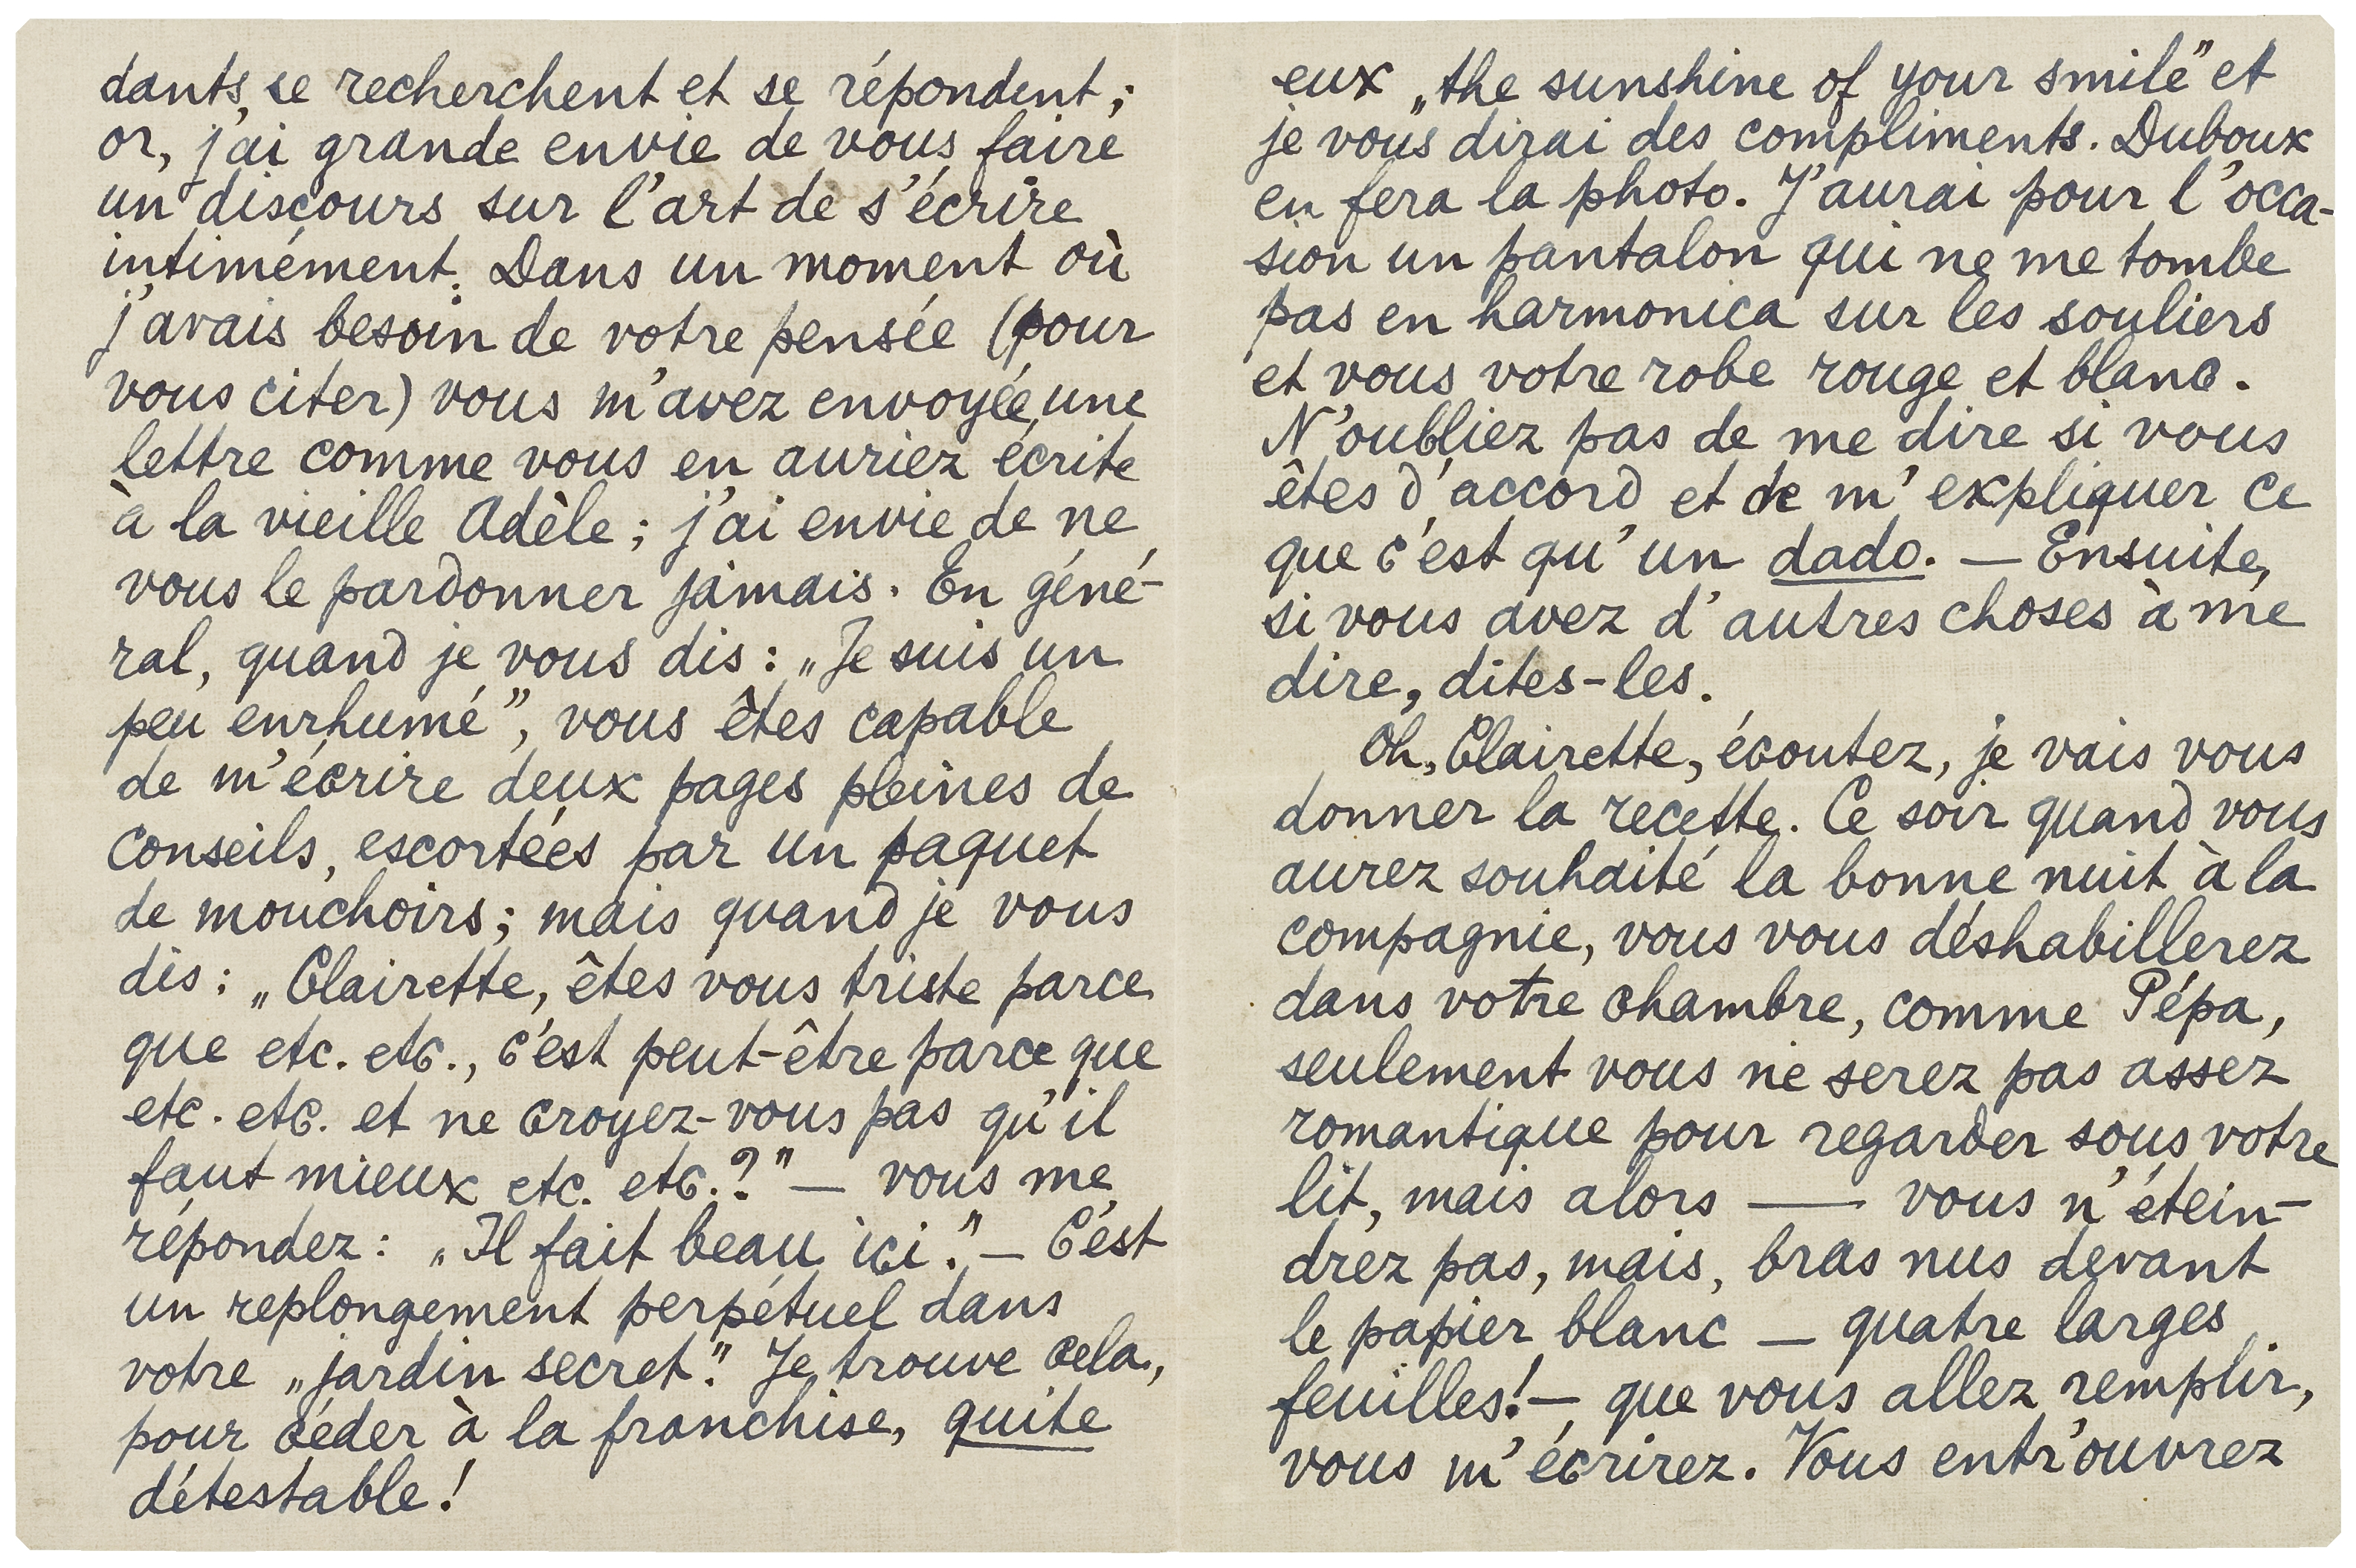 dants, se recherchent et se répondent ;
or, j'ai grande envie de vous faire
un discours sur l'art de s'écrire
intimément. Dans un moment où
j'avais besoin de votre pensée (pour
vous citer) vous m'avez envoyée une
lettre comme vous en auriez écrite
à la vieille Adèle ; j'ai envie de ne
vous le pardonner jamais. En géné-
ral, quand je vous dis : „Je suis un
peu enrhumé”, vous êtes capable
de m'écrire deux pages pleines de
conseils, escortées par un paquet
de mouchoirs ; mais quand je vous
dis : „Clairette, êtes vous triste parce
que etc. etc., c'est peut-être parce que
etc. etc. et ne croyez-vous pas qu'il
faut mieux etc. etc. ?” — vous me
répondez : „Il fait beau ici.” — C'est
un replongement perpétuel dans
votre „jardin secret”. Je trouve cela,
pour céder à la franchise, quite
détestable !
eux „the sunshine of your smile” et
je vous dirai des compliments. Duboux
en fera la photo. J'aurai pour l'occa-
sion un pantalon qui ne me tombe
pas en harmonica sur les souliers
et vous votre robe rouge et blanc.
N'oubliez pas de me dire si vous
êtes d'accord et de m'expliquer ce
que c'est qu'un dado. — Ensuite,
si vous avez d'autres choses à me
dire, dites-les.
Oh, Clairette, écoutez, je vais vous
donner la recette. Ce soir quand vous
aurez souhaité la bonne nuit à la
compagnie, vous vous déshabillerez
dans votre chambre, comme Pépa,
seulement vous ne serez pas assez
romantique pour regarder sous votre
lit, mais alors — vous n'étein-
drez pas, mais, bras nus devant
le papier blanc — quatre larges
feuilles ! — que vous allez remplir,
vous m'écrirez. Vous entr'ouvrez